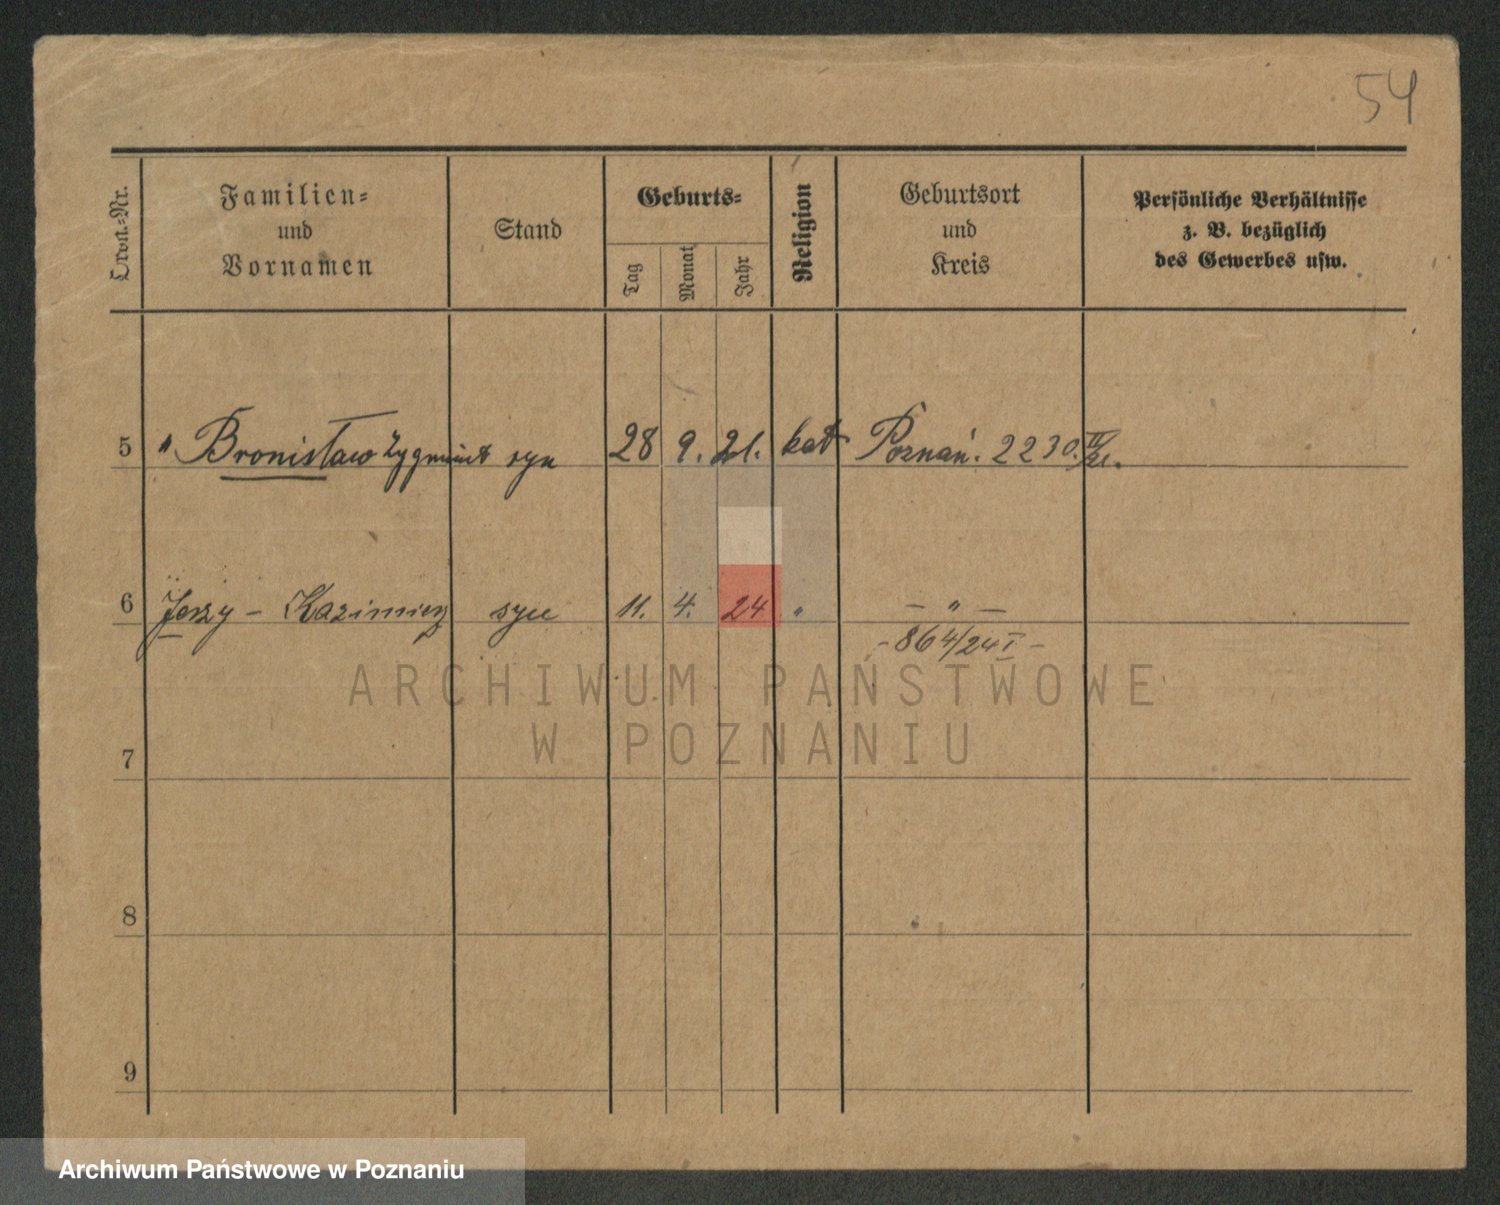 54
Ordn.-Nr.
Familien-
und
Vornamen
Stand
Geburts-
Tag
Monat
Jahr
Religion
Geburtsort
und
Kreis
Persönliche Verhältnisse
z. B. bezüglich
des Gewerbes usw.
5 " Bronisław Zygmunt syn 28 9. 21. kat Poznań. 2230
6 Jerzy - Kazimierz syn 11. 4. 24 " — " —
- 864/24 I -
ARCHIWUM PAŃSTWOWE
W POZNANIU
7
8
9
Archiwum Państwowe w Poznaniu